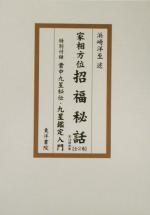 浜崎洋至 述
家相方位 招福秘話
特別付録 雲中九星秘伝・九星鑑定入門
東洋書院